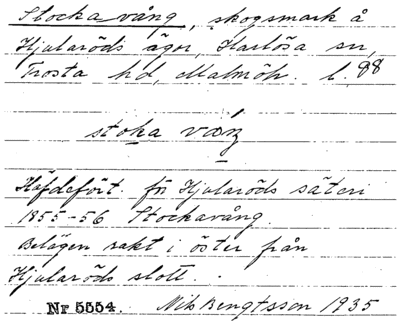 Stockavång, skogsmark å
Hjularöds ägor, Harlösa sn,
Frosta hd, Malmöh. l. 88
stoka våŋ
Häfdefört. för Hjularöds säteri
1855-56 Stockavång.
Belägen rakt i öster från
Hjularöds slott.
Nr 5554. Nils Bengtsson 1935